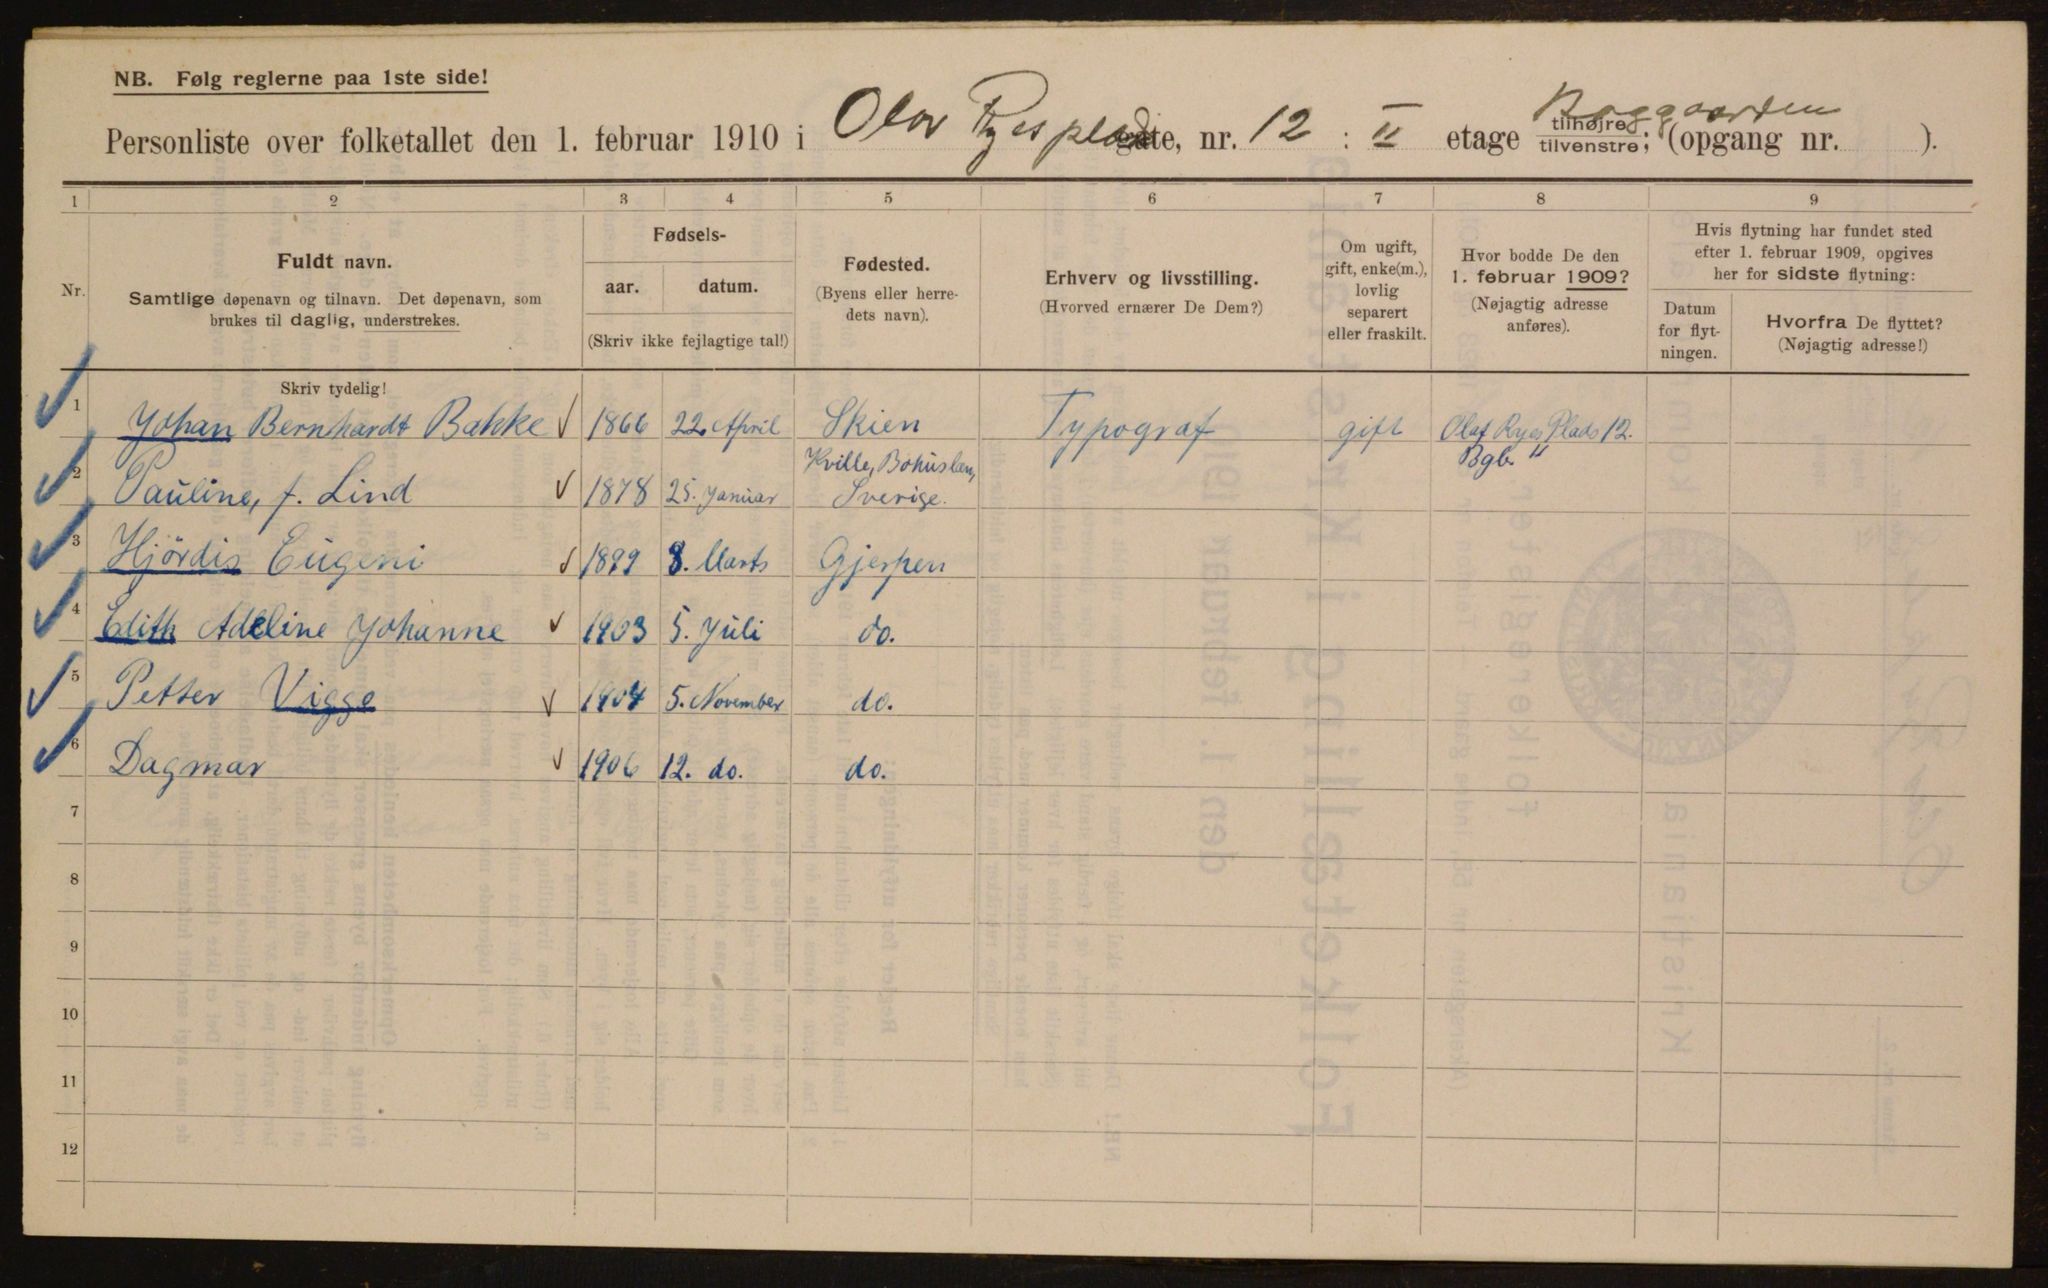 NB. Følg reglerne paa 1ste side!
Baggaarden
Personliste over folketallet den 1. februar 1910 i Olav Ryes plads gate, nr. 12 : II etage tilhøjre tilvenstre; (opgang nr. ).
1 2 3 4 5 6 7 8 9
Nr.
Fuldt navn.
Samtlige døpenavn og tilnavn. Det døpenavn, som
brukes til daglig, understrekes.
Fødsels-
aar. datum.
(Skriv ikke fejlagtige tal!)
Fødested.
(Byens eller herre-
dets navn).
Erhverv og livsstilling.
(Hvorved ernærer De Dem?)
Om ugift,
gift, enke(m.),
lovlig
separert
eller fraskilt.
Hvor bodde De den
1. februar 1909?
(Nøjagtig adresse
anføres).
Hvis flytning har fundet sted
efter 1. februar 1909, opgives
her for sidste flytning:
Datum
for flyt-
ningen.
Hvorfra De flyttet?
(Nøjagtig adresse!)
Skriv tydelig!
1 Johan Bernhardt Bakke 1866 22. April Skien Typograf gift Olaf Ryes Plads 12.
Bgb. II
2 Pauline, f. Lind 1878 25. Januar Kville, Bohuslen,
Sverige.
3 Hjördis Eugeni 1899 8. Marts Gjerpen
4 Edith Adeline Johanne 1903 5. Juli do.
5 Petter Viggo 1904 5. November do.
6 Dagmar 1906 12. do. do.
7
8
9
10
11
12